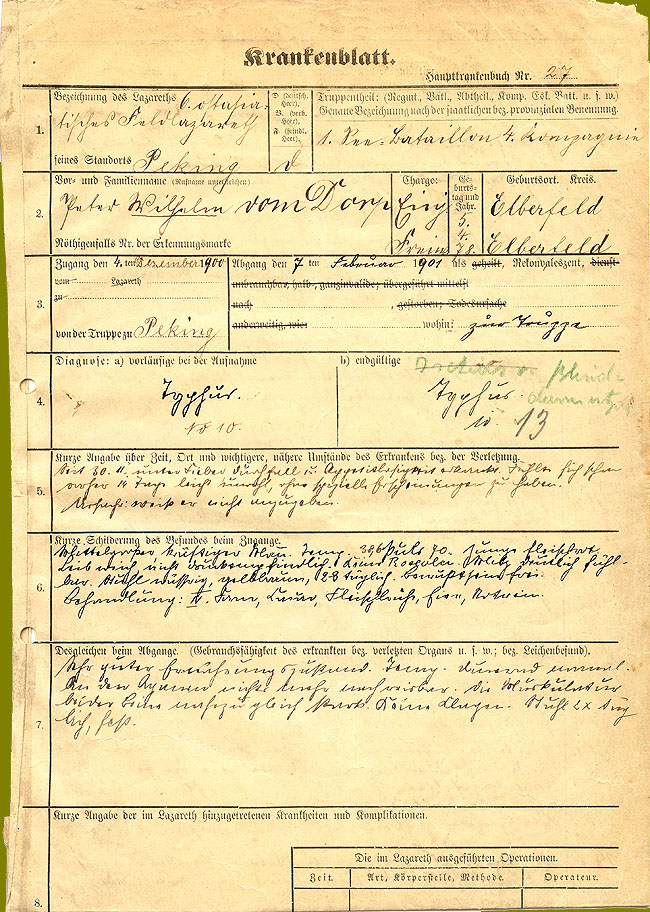 Krankenblatt.
Hauptkrankenbuch Nr. 27
1.
Bezeichnung des Lazareths 6. ostasia-
tisches Feldlazareth
seines Standorts Peking
D. (deutsch. Heer), B. (verb. Heer), F. (feindl. Heer).
d
Truppentheil: (Regmt., Batl., Abtheil., Komp. Esk. Batt. u. s. w.)
Genaue Bezeichnung nach der staatlichen bez. provinzialen Benennung.
1. See-Bataillon 4. Kompagnie
2.
Vor- und Familienname (Rufname unterstreichen)
Peter Wilhelm vom Dorp
Nöthigenfalls Nr. der Erkennungsmarke
Charge:
Einj.
Freiw.
Ge-
burts-
tag und
Jahr.
5.
4.
78.
Geburtsort. Kreis.
Elberfeld
Elberfeld
3.
Zugang den 4. ten Dezember 1900
vom Lazareth
zu
von der Truppe zu Peking
Abgang den 7 ten Februar 1901 als geheilt, Rekonvaleszent, dienst-
unbrauchbar, halb-, ganzinvalide; übergeführt mittelst
nach , gestorben; Todesursache
anderweitig, wie: wohin: zur Truppe
4.
Diagnose: a) vorläufige bei der Aufnahme
Typhus.
No 10.
b) endgültige
Typhus
13
5.
Kurze Angabe über Zeit, Ort und wichtigere, nähere Umstände des Erkrankens bez. der Verletzung.
Seit 30. 11. unter Fieber Durchfall u. Appetitlosigkeit erkrankt. Fühlte sich schon
vorher 14 Tage leicht krank, ohne spezielle Erscheinungen zu haben.
Ursache: weiss er nicht anzugeben.
6.
Kurze Schilderung des Befundes beim Zugange.
Mittelgroßer kräftiger Mann. Temp. 39,6 Puls 90. Zunge
Leib weich, nicht druckempfindlich. Keine Roseolen. Milz deutlich fühl-
bar. Stuhl wässrig, gelbbraun, täglich. Bewußtsein frei.
Behandlung: IV. Form, Fleischbrühe, Eier, Rotwein.
7.
Desgleichen beim Abgange. (Gebrauchsfähigkeit des erkrankten bez. verletzten Organs u. s. w.; bez. Leichenbefund).
Sehr guter Ernährungszustand. Temp. dauernd normal.
An den Organen nichts mehr nachweisbar. Die Muskulatur
beider Beine gleich stark. Keine Klagen. Stuhl 2x täg
lich, fest.
8.
Kurze Angabe der im Lazareth hinzugetretenen Krankheiten und Komplikationen.
Die im Lazareth ausgeführten Operationen.
Zeit. Art, Körperstelle, Methode. Operateur.